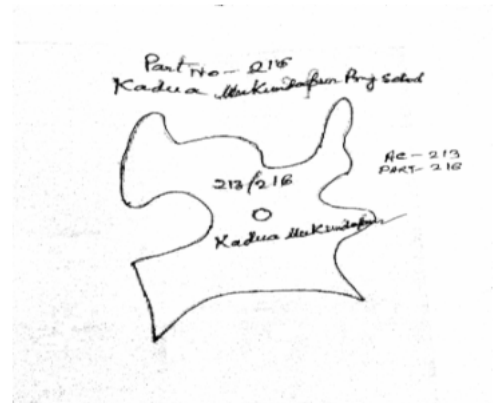 Part No - 216
Kadua Mukundapur Pry School
AC - 213
PART - 216
213/216
Kadua Mukundapur